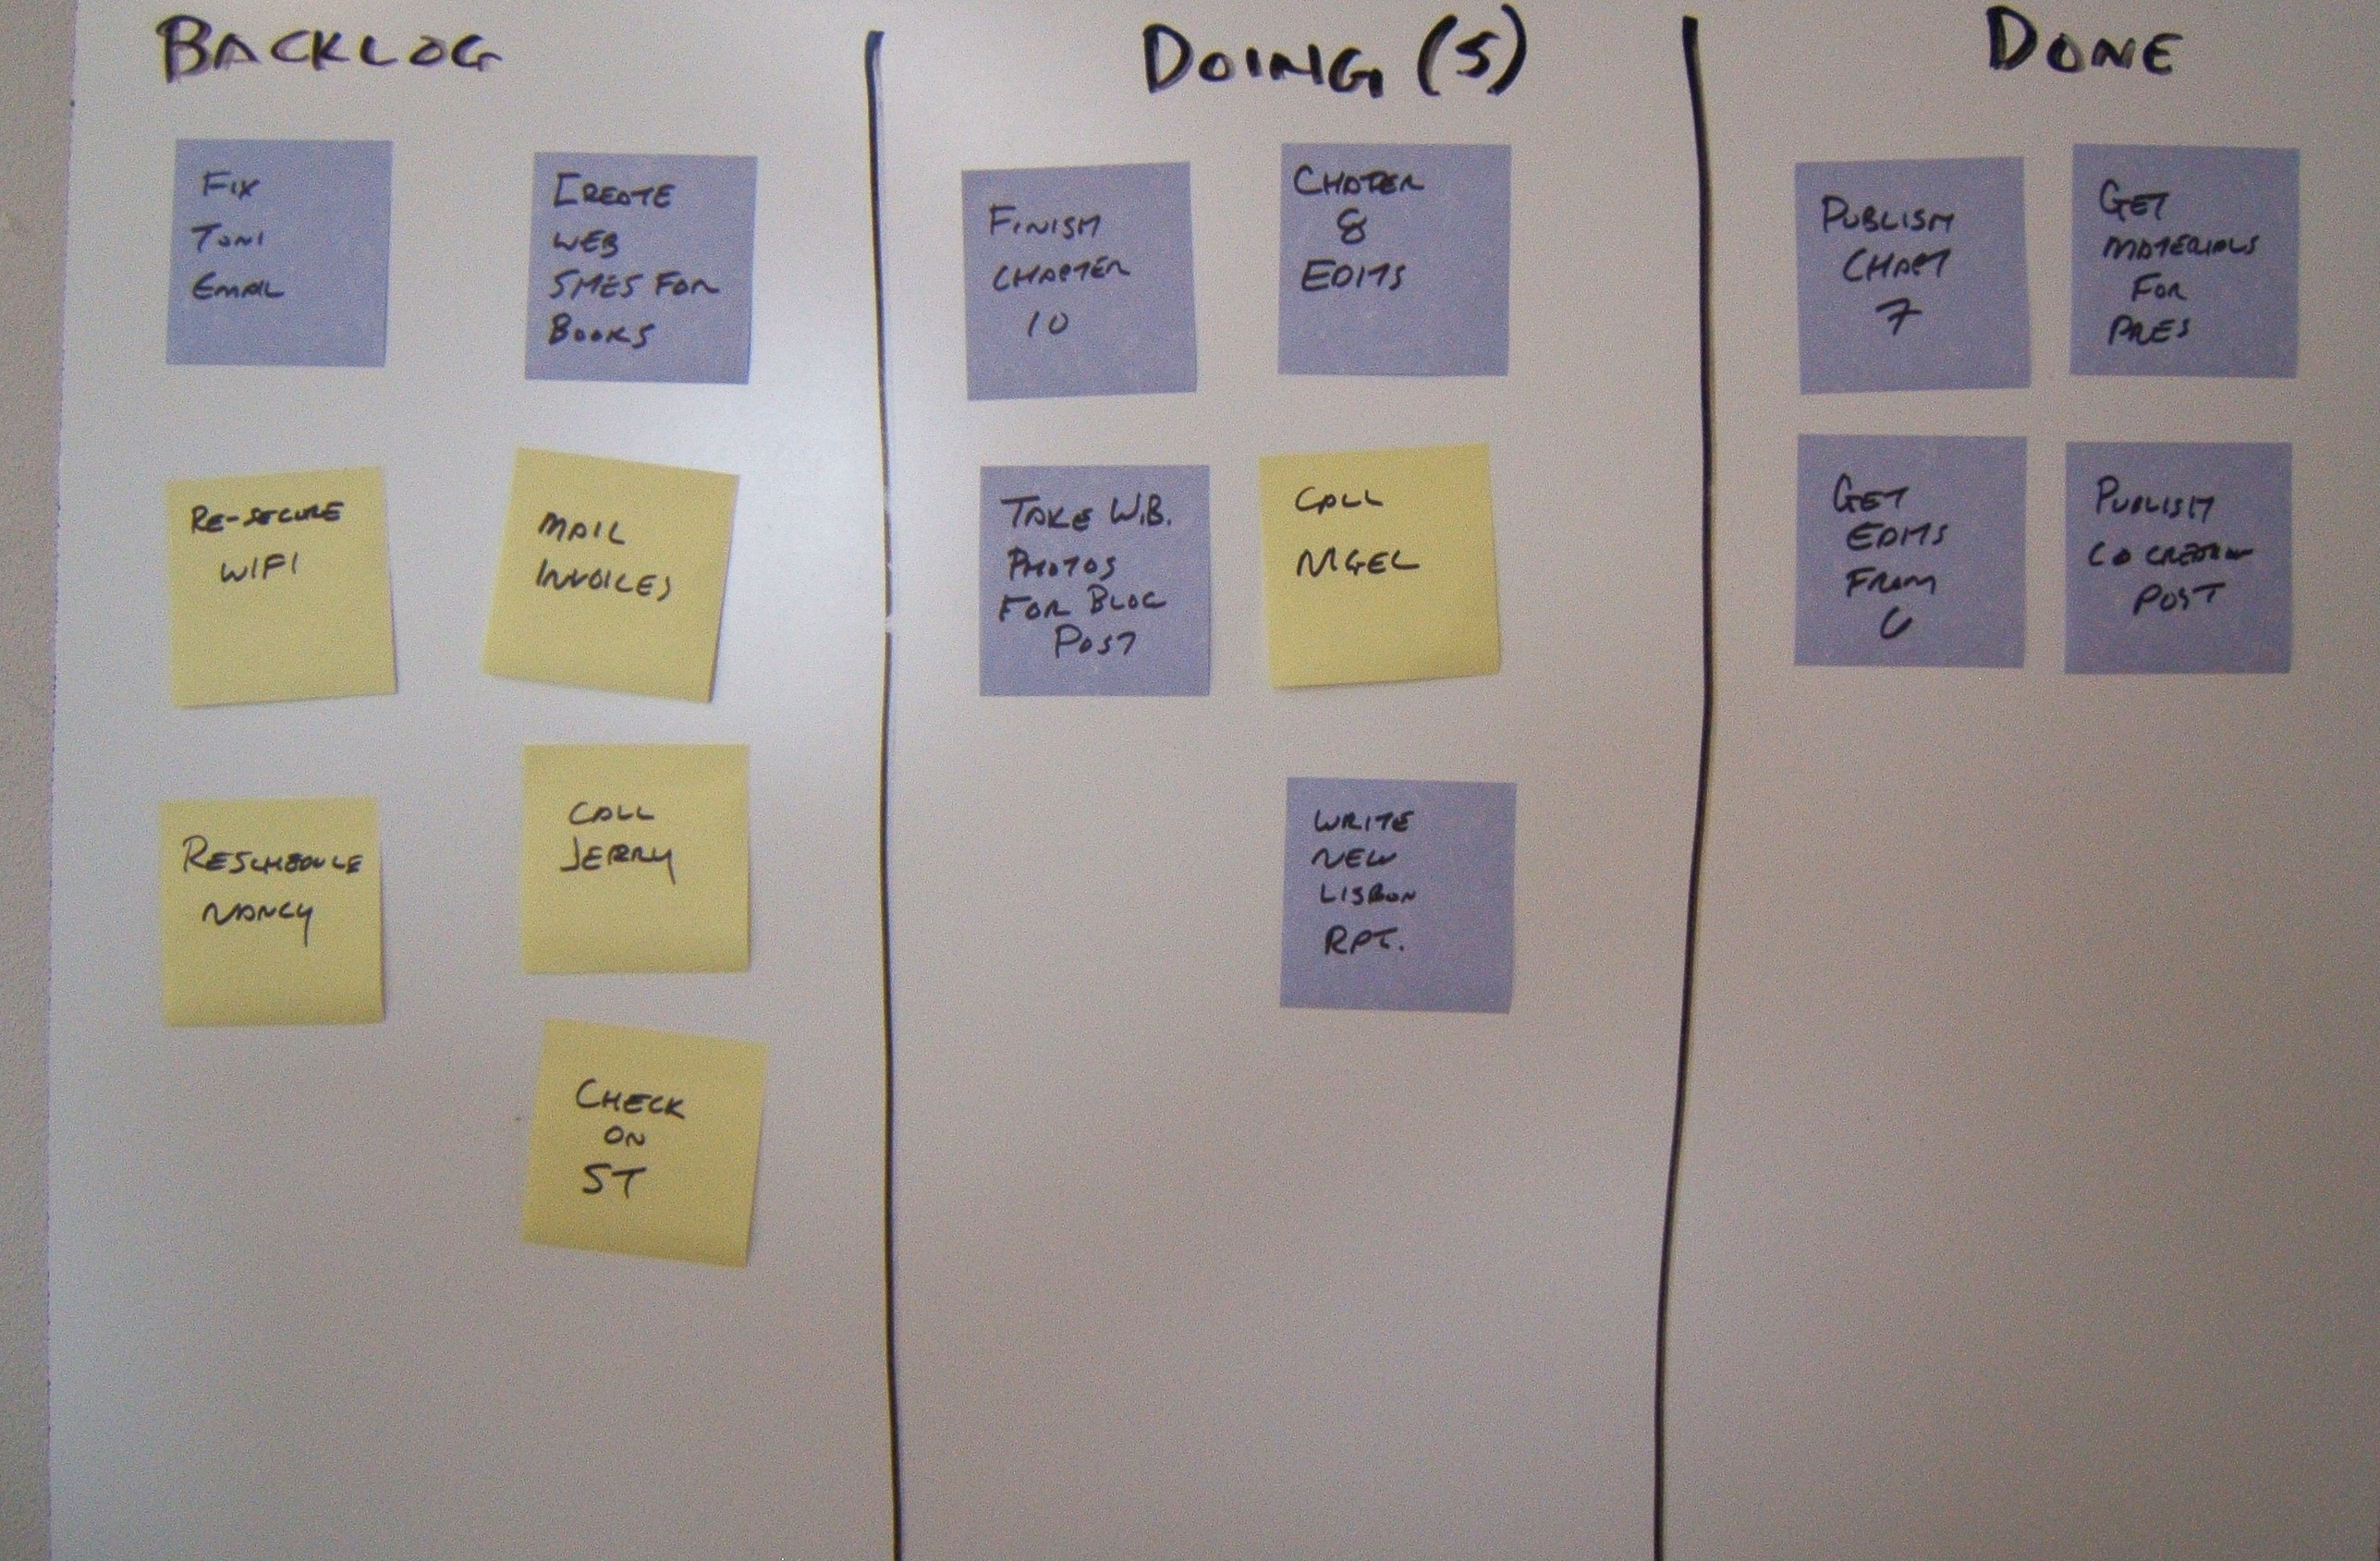 BACKLOG
FIX
TONI
EMAIL
CREATE
WEB
SITES FOR
BOOKS
RE-SECURE
WIFI
MAIL
INVOICES
RESCHEDULE
NANCY
CALL
JERRY
CHECK
ON
ST
DOING (5)
FINISH
CHAPTER
10
CHAPTER
8
EDITS
TAKE W.B.
PHOTOS
FOR BLOG
POST
CALL
NIGEL
WRITE
NEW
LISBON
RPT.
DONE
PUBLISH
CHAPT
7
GET
MATERIALS
FOR
PRES
GET
EDITS
FROM
C
PUBLISH
CO CREATION
POST